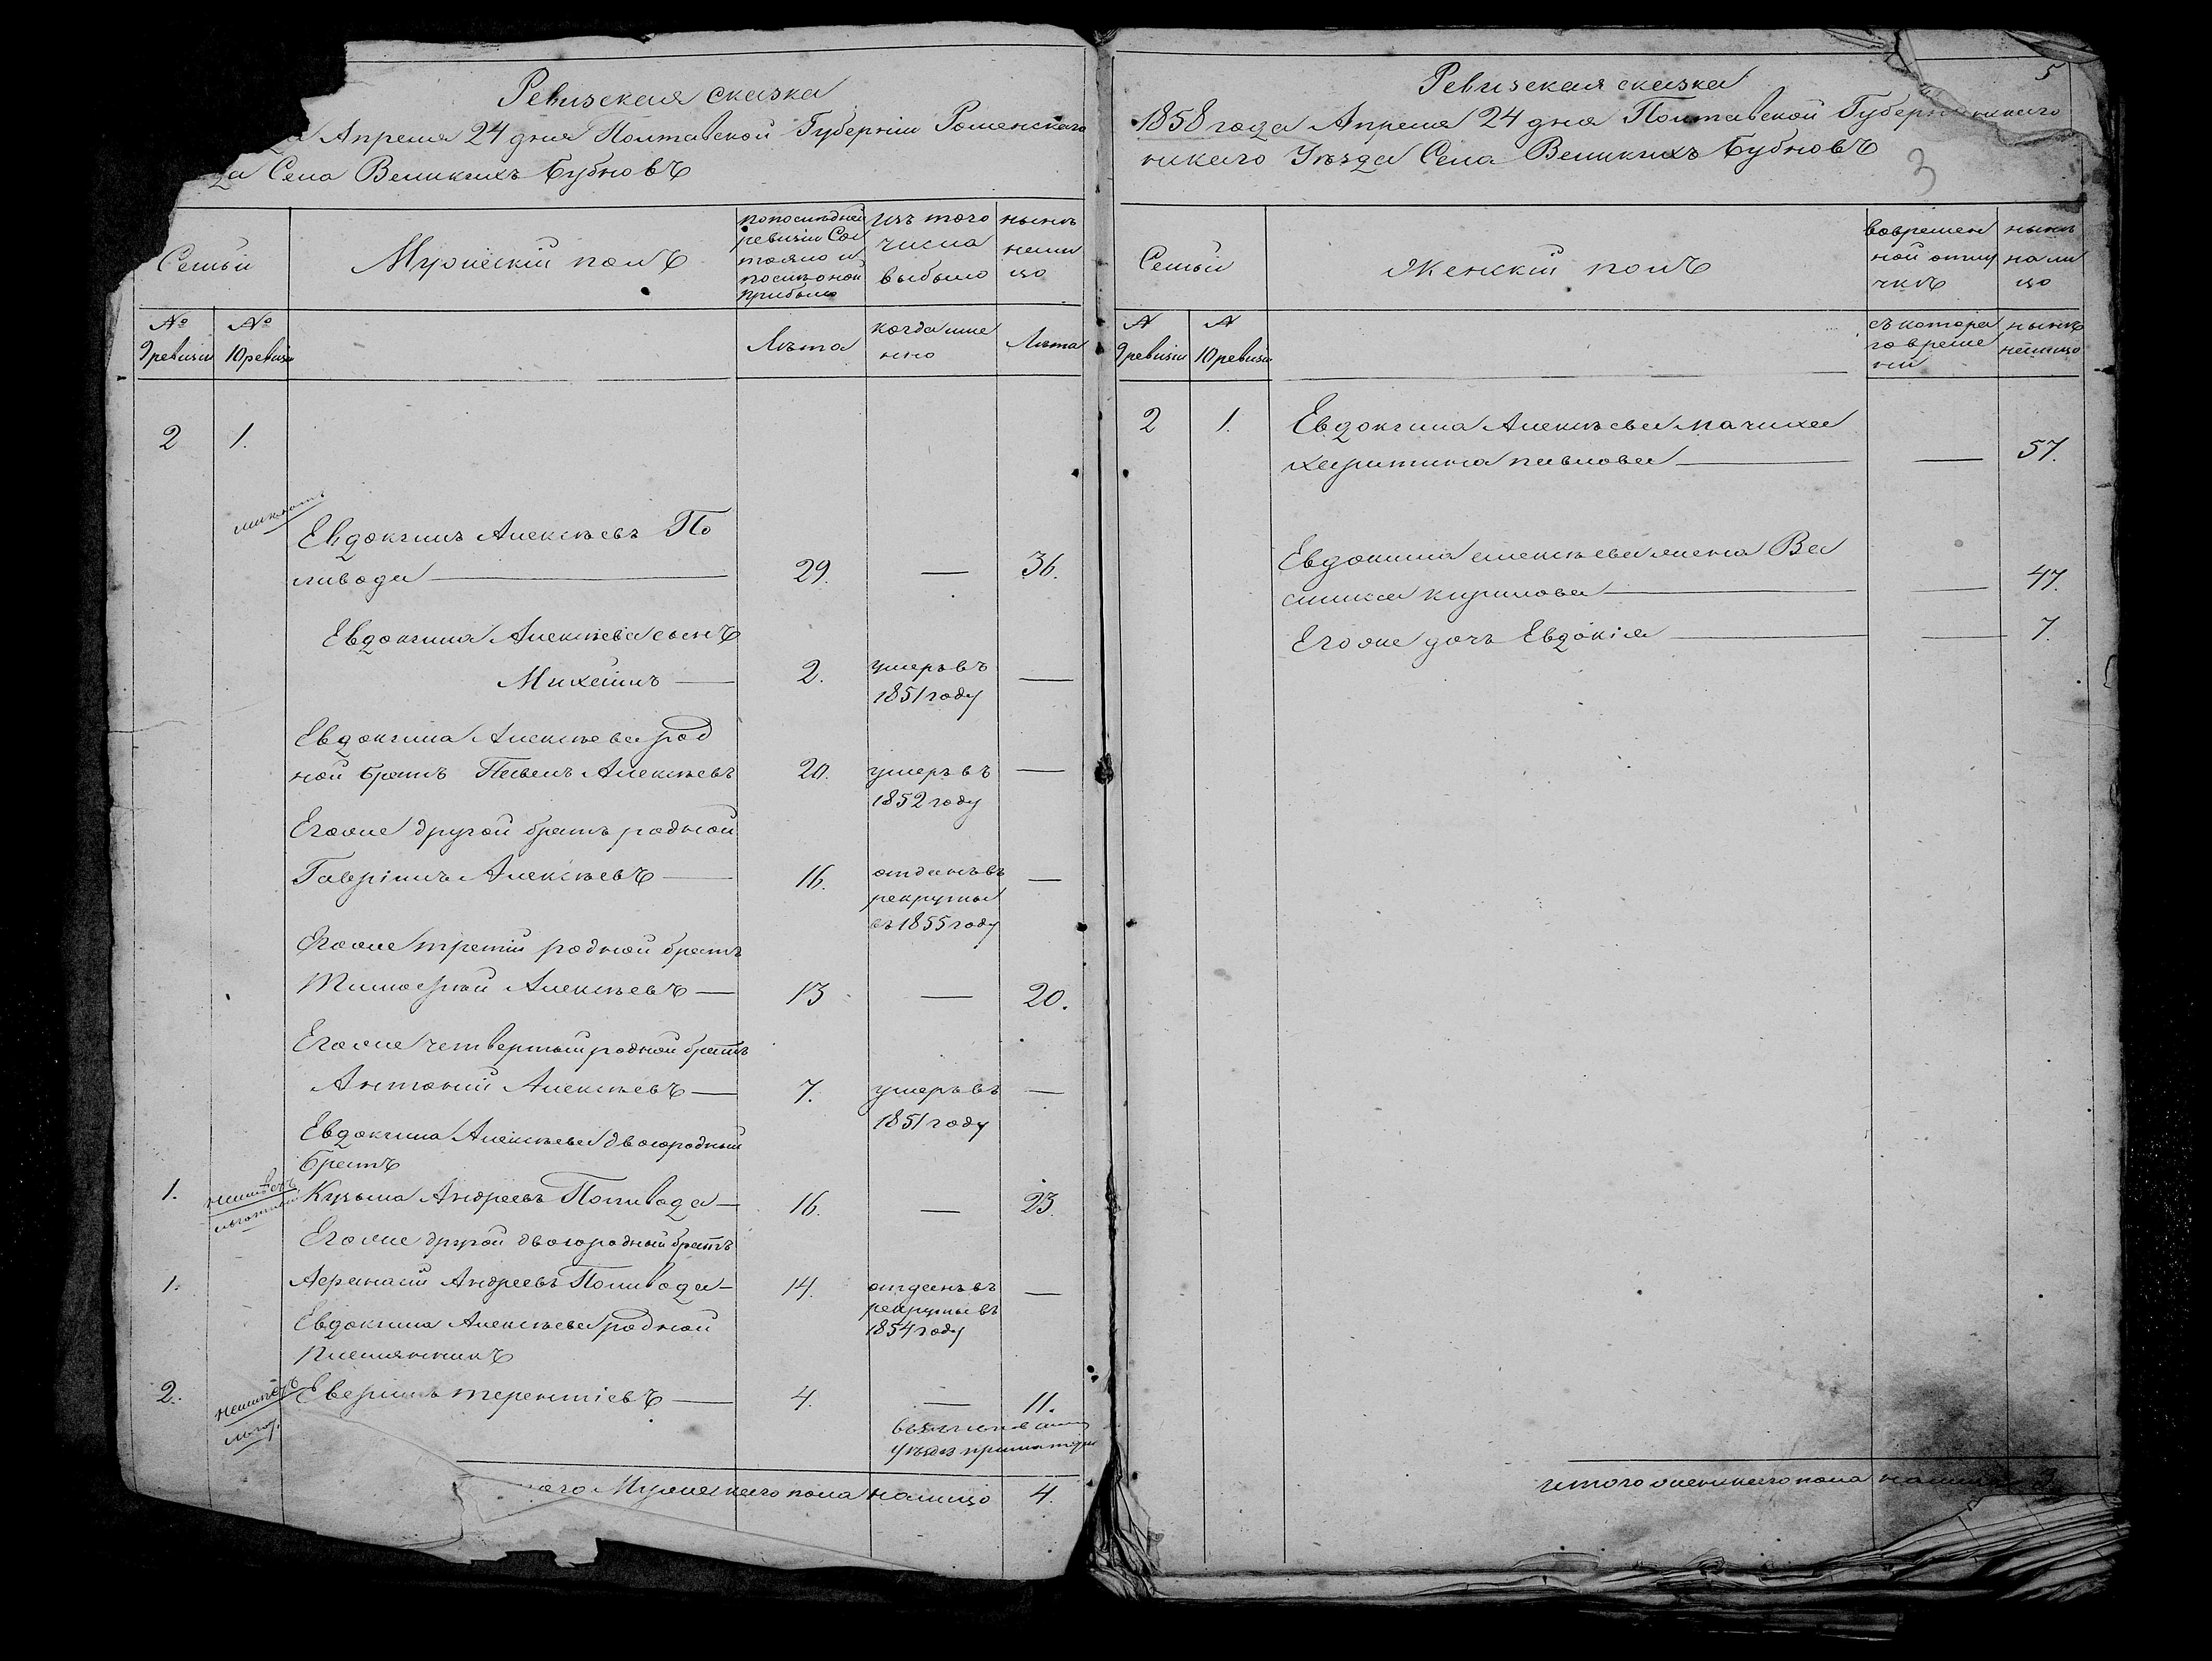 Ревизская сказка
Апреля 24 дня Полтавской Губерніи Роменскаго
Села Великихъ Бубновъ
Семьи
Мужескій полъ
по последней
ревизіи Сос
тояло и
после оной
прибыло
изъ того
числа
выбыло
ныне
нали
цо
№
9 ревизіи
№
10 ревизіи
Лѣта
когда име
нно
Лѣта
2
1.
Евдокимъ Алексѣевъ По
ливода — 29. — 36.
Евдокима Алексѣева сынъ
Михаилъ — 2. умеръ въ —
1851 году
Евдокима Алексѣева род
ной братъ Павелъ Алексѣевъ 20. умеръ въ —
1852 году
Егоже другой братъ родной
Гавріилъ Алексѣевъ — 16. отданъ въ —
рекруты
въ 1855 году
Егоже третій родной братъ
Тимофей Алексѣевъ — 13 — 20.
Егоже четвертый родной братъ
Антоній Алексѣевъ — 7. умеръ въ —
1851 году
Евдокима Алексѣева двоюродный
братъ
1. Кузьма Андреевъ Поливода — 16. — 23.
Егоже другой двоюродный братъ
1. Афанасій Андреевъ Поливода — 14. отданъ въ —
рекруты въ
1854 году
Евдокима Алексѣева родной
племянникъ
2. Аверіянъ терентіевъ — 4. — 11.
Мужескаго пола налицо 4.
5
Ревизская сказка
1858 года Апреля 24 дня Полтавской Губерн
нскаго Уѣзда Села Великихъ Бубновъ
3
Семьи
Женскій полъ
во времен
ной отлу
чкѣ
ныне
нали
цо
№
9 ревизіи
№
10 ревизіи
съ котора
го време
ни
ныне
налицо
2 1. Евдокима Алексѣева мачиха
харитина павлова — — 57.
Евдокима алексѣева жена Ва
силиса кирилова — — 47.
Егоже дочь Евдокія — — 7.
итого женскаго пола налицо 3